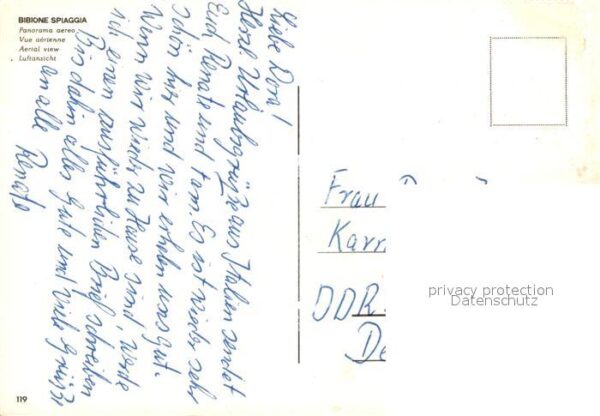 BIBIONE SPIAGGIA
Panorama aereo
Vue aérienne
Aerial view
Luftansicht
Liebe Dora!
Herzl. Urlaubsgrüße aus Italien sendet
Euch Renate und Fam. Es ist wieder sehr
schön hier und wir erholen uns gut.
Wenn wir wieder zu Hause sind, werde
ich einen ausführlichen Brief schreiben
Bis dahin alles Gute und viele Grüße
an alle Renate
119
Frau
Karr
DDR
De
privacy protection
Datenschutz